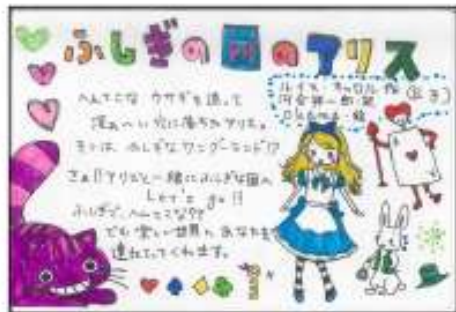 ふしぎの国のアリス
ルイス・キャロル 作
河合祥一郎・訳
okama・絵
へんてこな ウサギを追って
深ぁ〜い穴に落ちたアリス。
そこは、ふしぎなワンダーランド!?
さぁ!!アリスと一緒にふしぎな国へ
Let's go!!
ふしぎで、ヘンテコな??
でも楽しい世界へ あなたを
連れてってくれます。